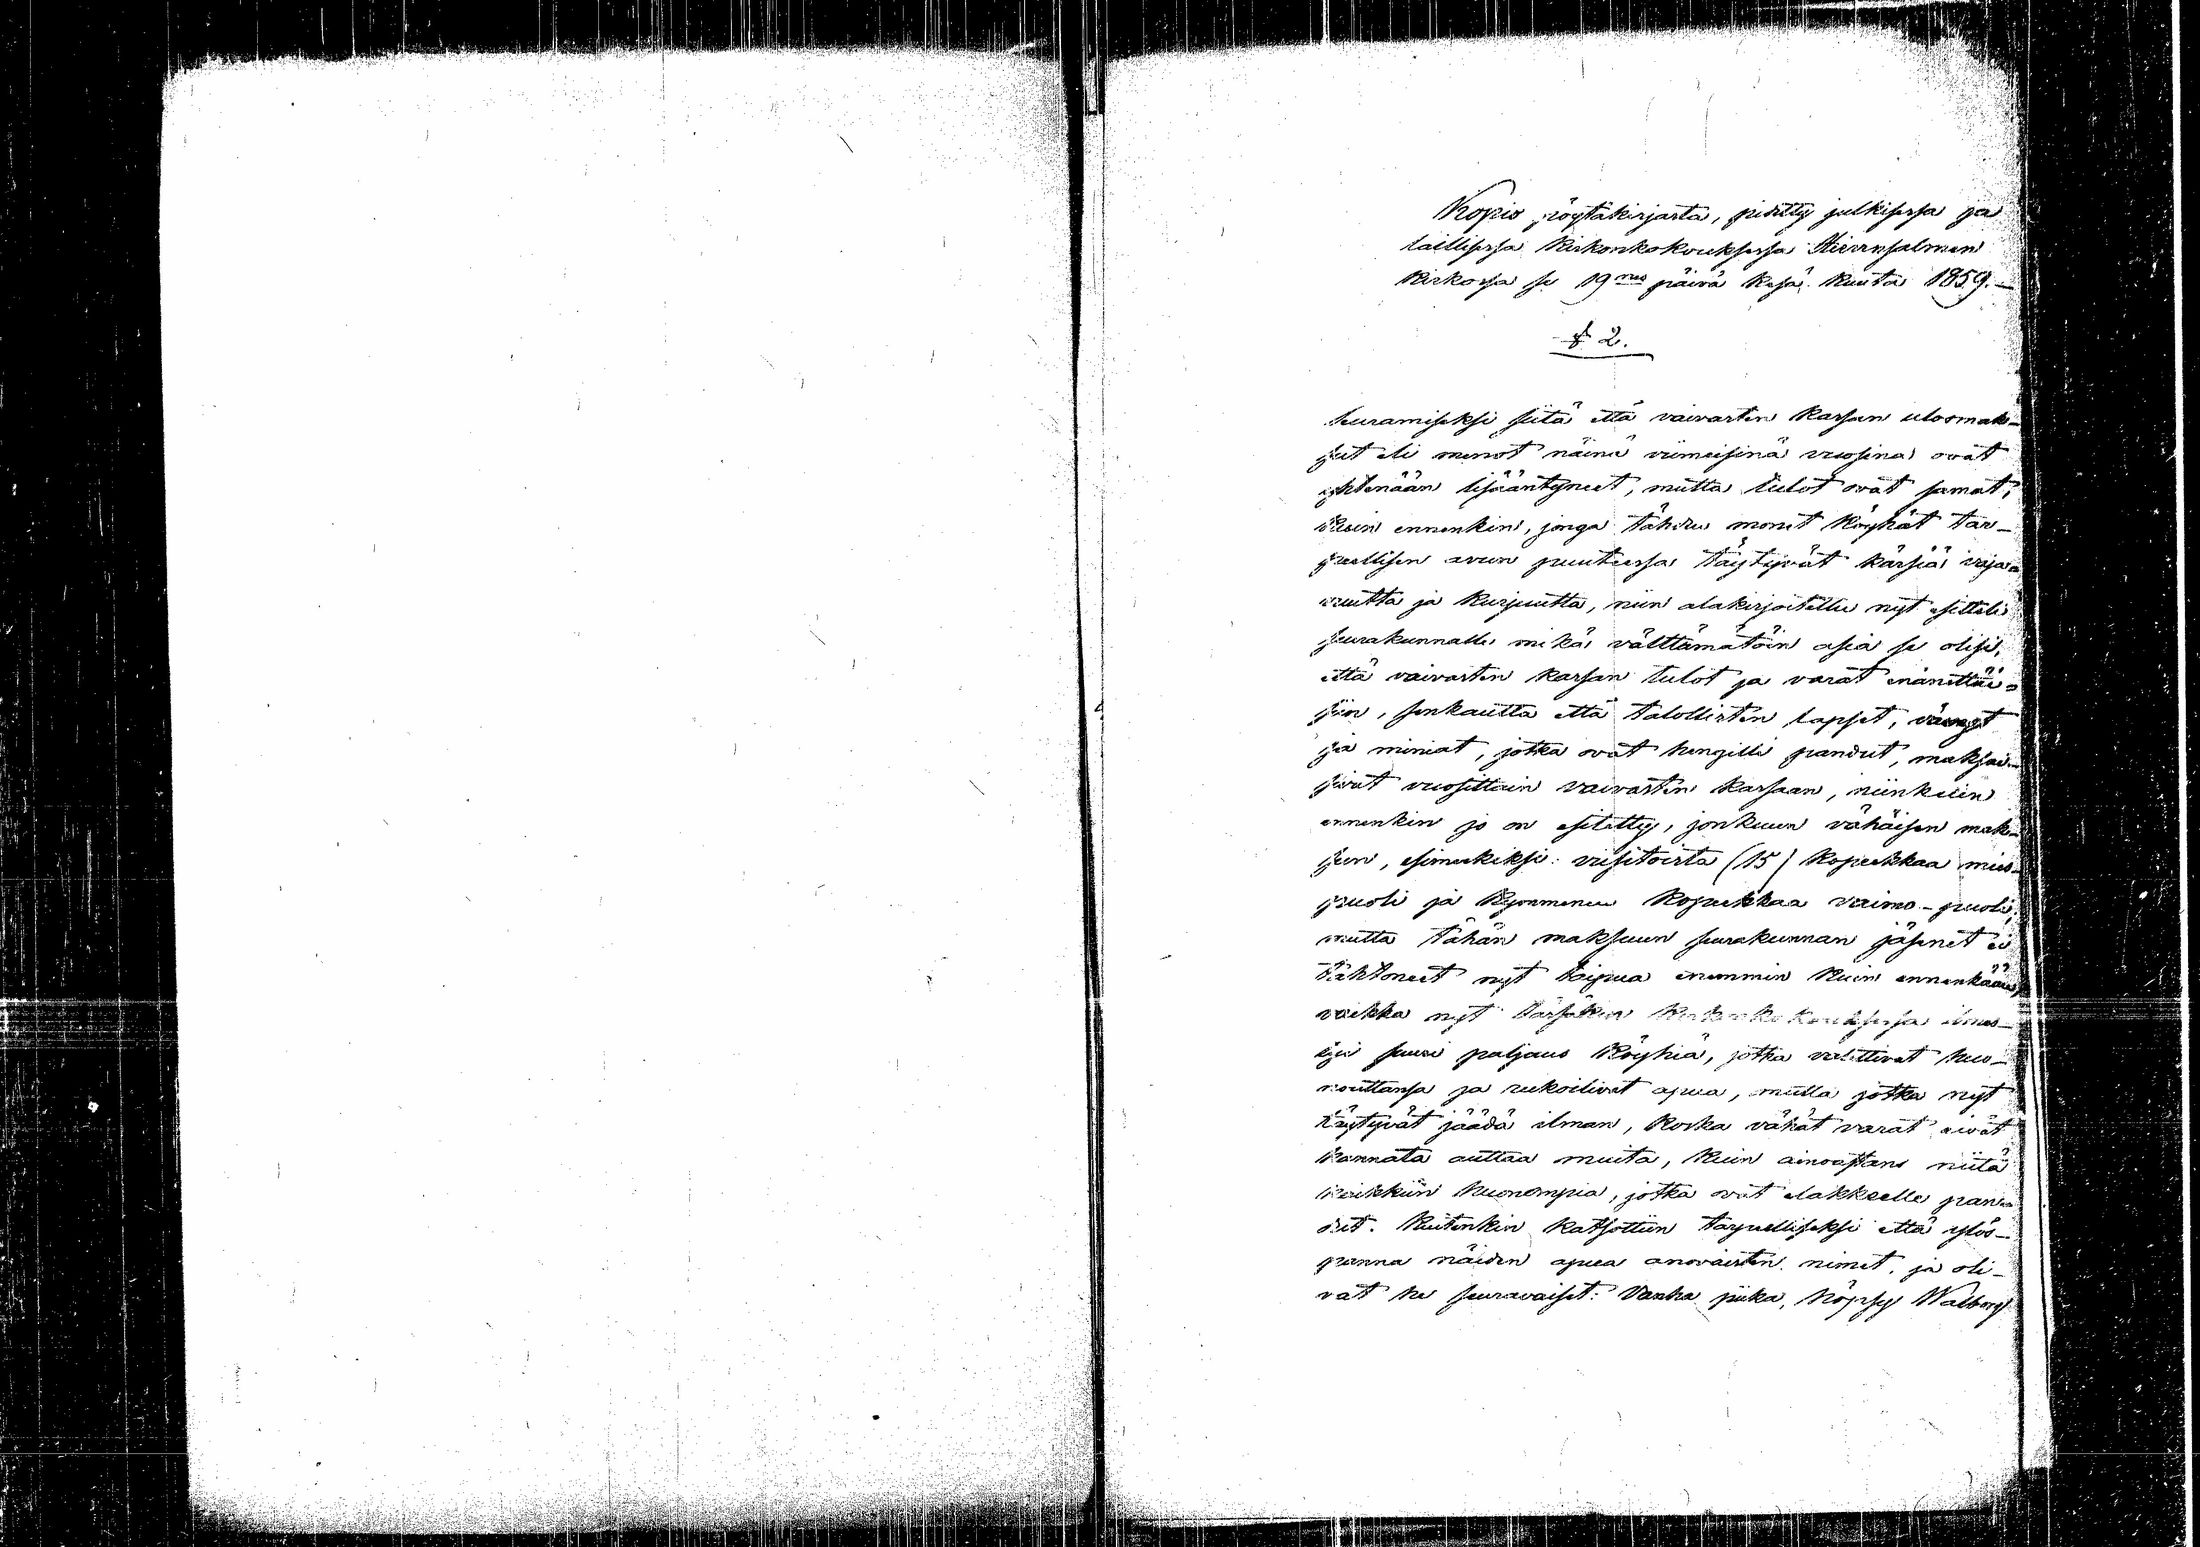 Kopio pöytäkirjasta, pidetty julkisessa ja
laillisessa Kirkonkokouksessa Hirvensalmen
Kirkossa se 19nes päivä Kesä Kuuta 1859.—
§ 2.
Seuramiseksi siitä että vaivasten Kassan ulosmak-
sut eli menot näinä viimeisinä vuosina ovat
yhtenään lisääntyneet, mutta tulot ovat samat,
kuin ennenkin, jonga tähden monet Köyhät tar-
peellisen avun puuteessa täytyvät kärsiä vaja-
vuutta ja kurjuutta, niin alakirjoitettu nyt esitteli
seurakunnalle mikä välttämätöin asia se olisi,
että vaivasten kassan tulot ja varat enänettäi-
siin, senkautta että talollisten lapset, vävyt
ja miniat, jotka ovat hengille pandut, maksai-
sivat vuosittain vaivasten Kassaan, niinkuin
ennenkin jo on esitetty, jonkuun vähäisen mak-
sun, esimerkiksi: viisitoista (15) Kopeekkaa mies-
puoli ja Kymmenen Kopeekkaa vaimo-puoli,
mutta tähän maksuun seurakunnan jäsenet ei
tahtoneet nyt taipua enemmin kuin ennenkään,
vaikka nyt tässäkin Kirkonkokouksessa ilmes-
tyi suuri paljous Köyhiä, jotka valittivat huo-
nouttansa ja rukoilivat apua, mutta jotka nyt
täytyvät jäädä ilman, koska vähät varat eivät
kannata auttaa muita, kuin ainoastans niitä
kaikkiin huonompia, jotka ovat elakkeelle pan-
dut. Kuitenkin katsottiin tarpeelliseksi että ylös-
panna näiden apua anovaisten nimet, ja oli-
vat he seuravaiset: Vanha piika, Höpsy Walborg